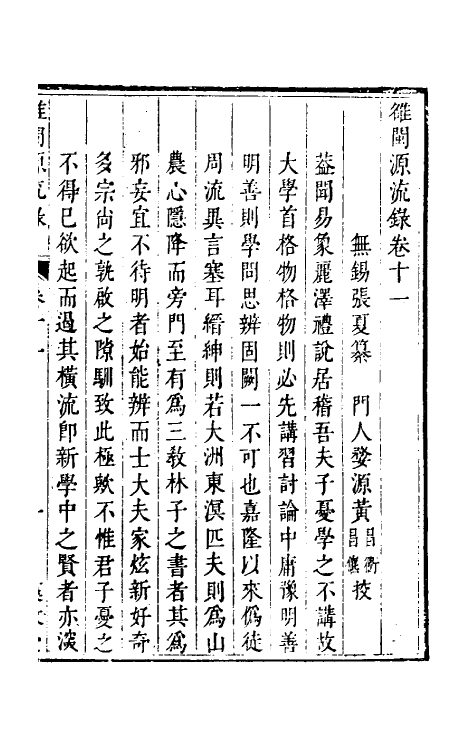 雒閩源流錄卷十一
無錫張夏纂　門人婺源黃昌衢昌儀挍
葢聞易象麗澤禮說居稽吾夫子憂學之不講故
大學首格物格物則必先講習討論中庸豫明善
明善則學問思辨固闕一不可也嘉隆以來僞徒
周流異言塞耳縉紳則若大洲東溟匹夫則爲山
農心隱降而旁門至有爲三教林子之書者其爲
邪妄宜不待明者始能辨而士大夫家炫新好奇
多宗尚之孰啟之隙馴致此極歟不惟君子憂之
不得已欲起而遏其橫流卽新學中之賢者亦深
雒閩源流錄
卷十一
一